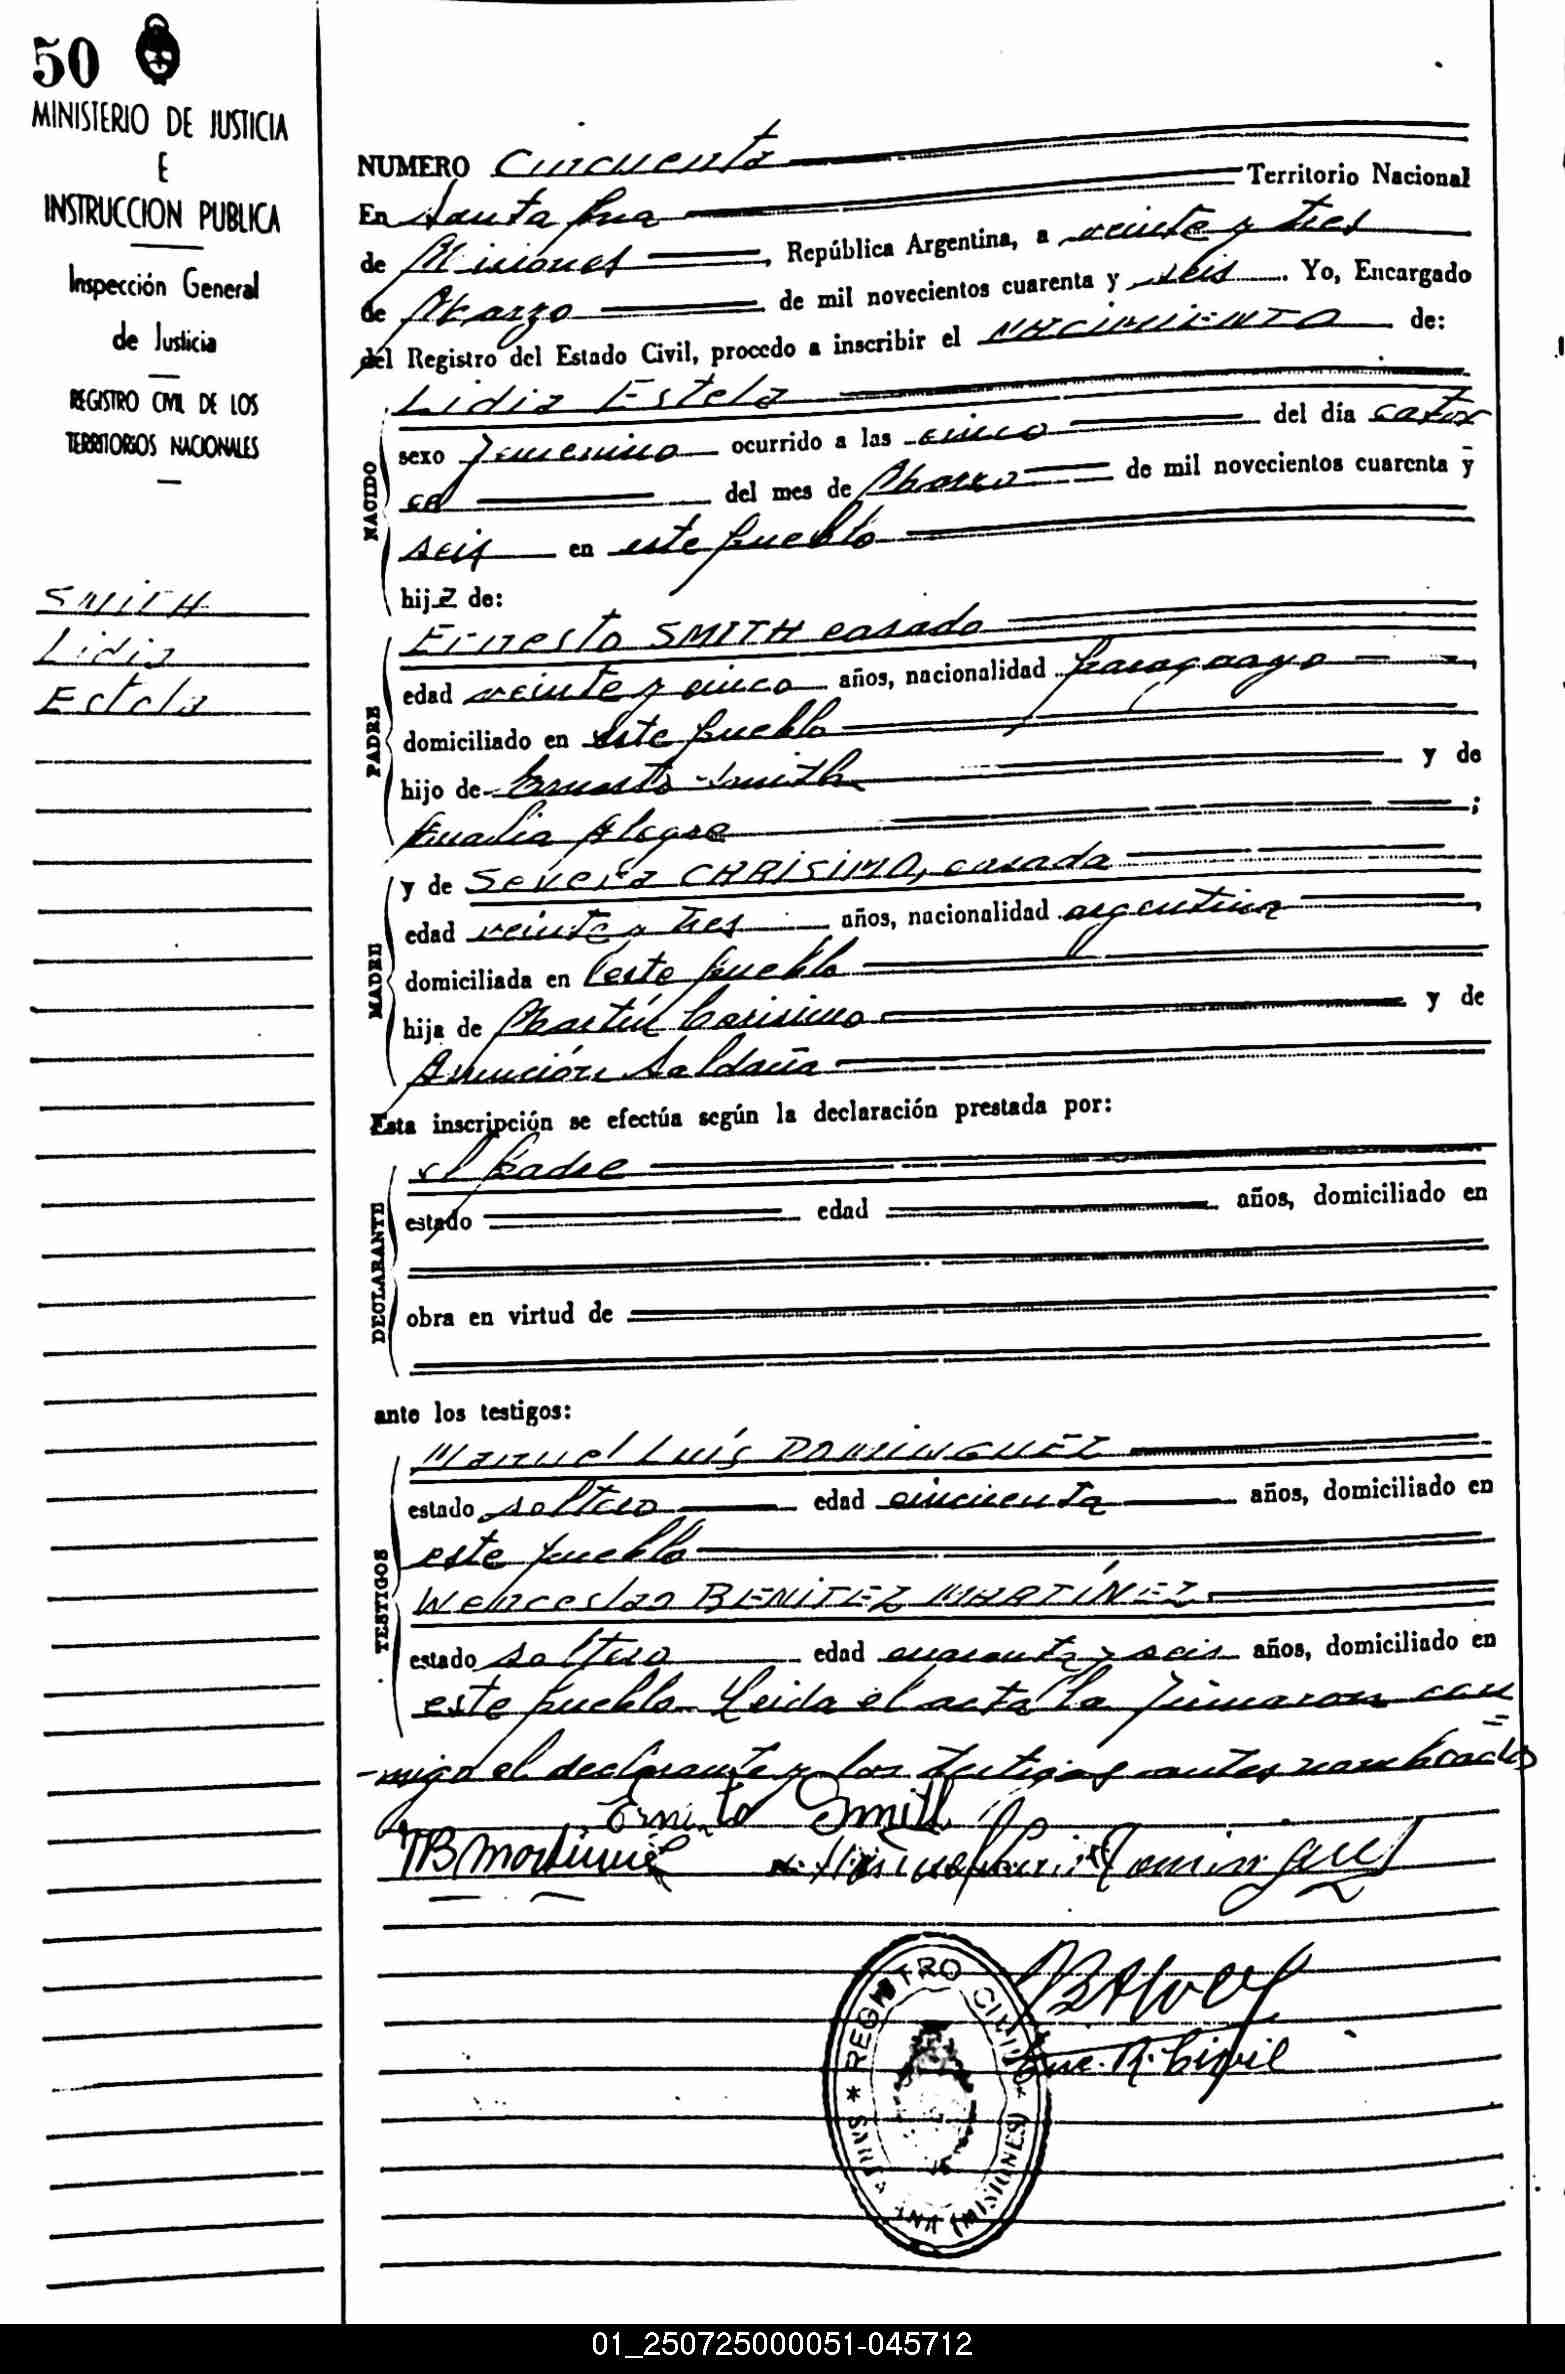 50
MINISTERIO DE JUSTICIA
E
INSTRUCCION PUBLICA
Inspección General
de Justicia
REGISTRO CIVIL DE LOS
TERRITORIOS NACIONALES
SMITH
Lidia
Estela
NUMERO Cincuenta
En Santa Ana Territorio Nacional
de Misiones, República Argentina, a veinte y tres
de Marzo de mil novecientos cuarenta y seis. Yo, Encargado
del Registro del Estado Civil, procedo a inscribir el NACIMIENTO de:
NACIDO
Lidia Estela
sexo femenino ocurrido a las cinco del día cator
ce del mes de Marzo de mil novecientos cuarenta y
seis en este pueblo
hija de:
PADRE
Ernesto SMITH casado
edad veinte y cinco años, nacionalidad paraguayo
domiciliado en este pueblo
hijo de Ernesto Smith y de
Amalia Alegre;
MADRE
y de Severa CARISIMO, casada
edad veinte y tres años, nacionalidad argentina,
domiciliada en este pueblo
hija de Martín Carisimo y de
Asunción Saldaña
Esta inscripción se efectúa según la declaración prestada por:
DECLARANTE
el padre
estado edad años, domiciliado en
obra en virtud de
ante los testigos:
TESTIGOS
Manuel Luís DOMINGUEZ
estado soltero edad cincuenta años, domiciliado en
este pueblo
Wenceslao BENITEZ MARTÍNEZ
estado soltero edad cuarenta y seis años, domiciliado en
este pueblo. Leida el acta la firmaron con
-migo el declarante y los testigos antes nombrados
Ernesto Smith
Manuel Luis Dominguez
Enc. R. Civil
REGISTRO CIVIL
SANTA ANA (MISIONES)
01_250725000051-045712